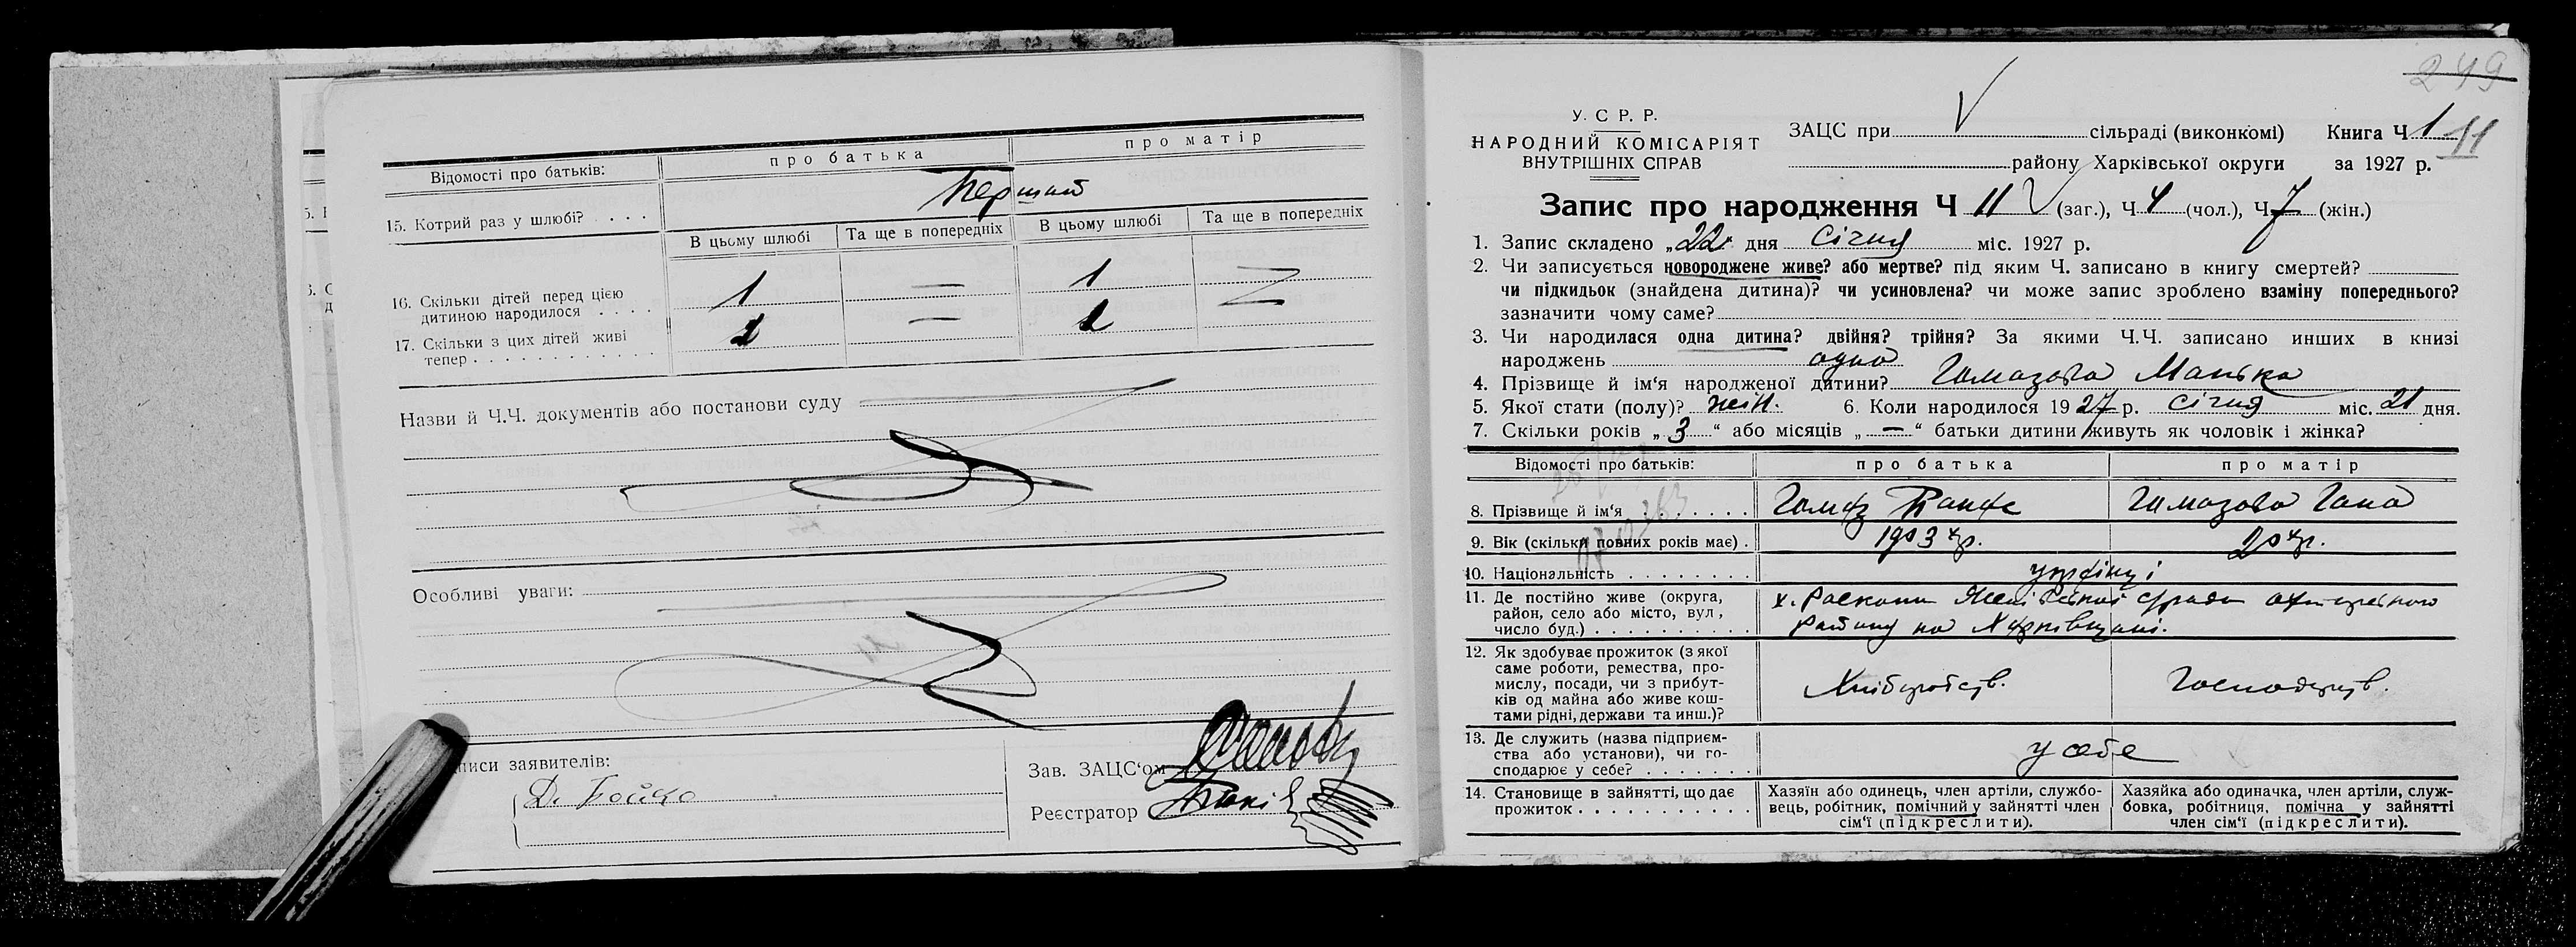 Відомості про батьків:
про батька
про матір
15. Котрий раз у шлюбі? . . . .
Перший
В цьому шлюбі
Та ще в попередніх
В цьому шлюбі
Та ще в попередніх
16. Скільки дітей перед цією
дитиною народилося . . . .
1 — 1 —
17. Скільки з цих дітей живі
тепер . . . . . . . . . . . .
— —
Назви й Ч.Ч. документів або постанови суду
Особливі уваги:
писи заявителів:
Д. Бойко
Зав. ЗАЦС‘ом
Реєстратор
249
У. С. Р. Р.
НАРОДНИЙ КОМІСАРІЯТ
ВНУТРІШНІХ СПРАВ
ЗАЦС при сільраді (виконкомі) Книга Ч 1 11
району Харківської округи за 1927 р.
Запис про народження Ч 11 (заг.), Ч 4 (чол.), Ч 7 (жін.)
1. Запис складено „22“ дня січня міс. 1927 р.
2. Чи записується новороджене живе? або мертве? під яким Ч. записано в книгу смертей?
чи підкидьок (знайдена дитина)? чи усиновлена? чи може запис зроблено взаміну попереднього?
зазначити чому саме?
3. Чи народилася одна дитина? двійня? трійня? За якими Ч.Ч. записано инших в книзі
народжень одна
4. Прізвище й ім‘я народженої дитини?
5. Якої стати (полу)? жін. 6. Коли народилося 1927 р. січня міс. 21 дня.
7. Скільки років „3“ або місяців „—“ батьки дитини живуть як чоловік і жінка?
Відомості про батьків:
про батька
про матір
8. Прізвище й ім‘я . . . . . . .
9. Вік (скільки повних років має) .
1903 р.
20 р.
10. Національність . . . . . . . .
українці
11. Де постійно живе (округа,
район, село або місто, вул,
число буд.) . . . . . . . . . . .
району на Харківщині.
12. Як здобуває прожиток (з якої
саме роботи, ремества, про-
мислу, посади, чи з прибут-
ків од майна або живе кош-
тами рідні, держави та инш.)?
Хліборобств.
Господарств.
13. Де служить (назва підприєм-
ства або установи), чи го-
сподарює у себе? . . . . . . .
у себе
14. Становище в зайнятті, що дає
прожиток . . . . . . . . . . .
Хазяїн або одинець, член артіли, службо-
вець, робітник, помічний у зайнятті член
сім‘ї (підкреслити).
Хазяйка або одиначка, член артіли, служ-
бовка, робітниця, помічна у зайнятті
член сім‘ї (підкреслити).